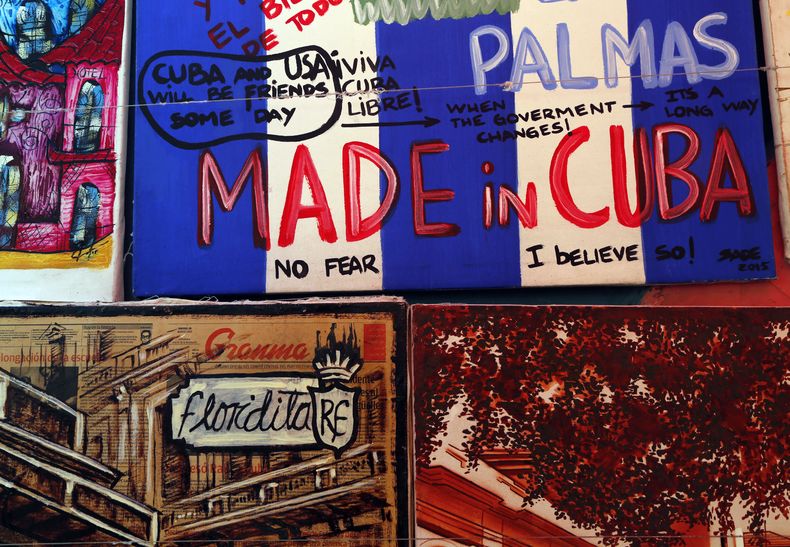 Y
EL BI
DE TODO
PALMAS
CUBA AND USA
WILL BE FRIENDS
SOME DAY
¡VIVA
CUBA
LIBRE!
WHEN
THE GOVERMENT
CHANGES!
ITS A
LONG WAY
MADE in CUBA
NO FEAR
I BELIEVE SO!
SADE
2015
Granma
longación de la escuela
floridita
RE